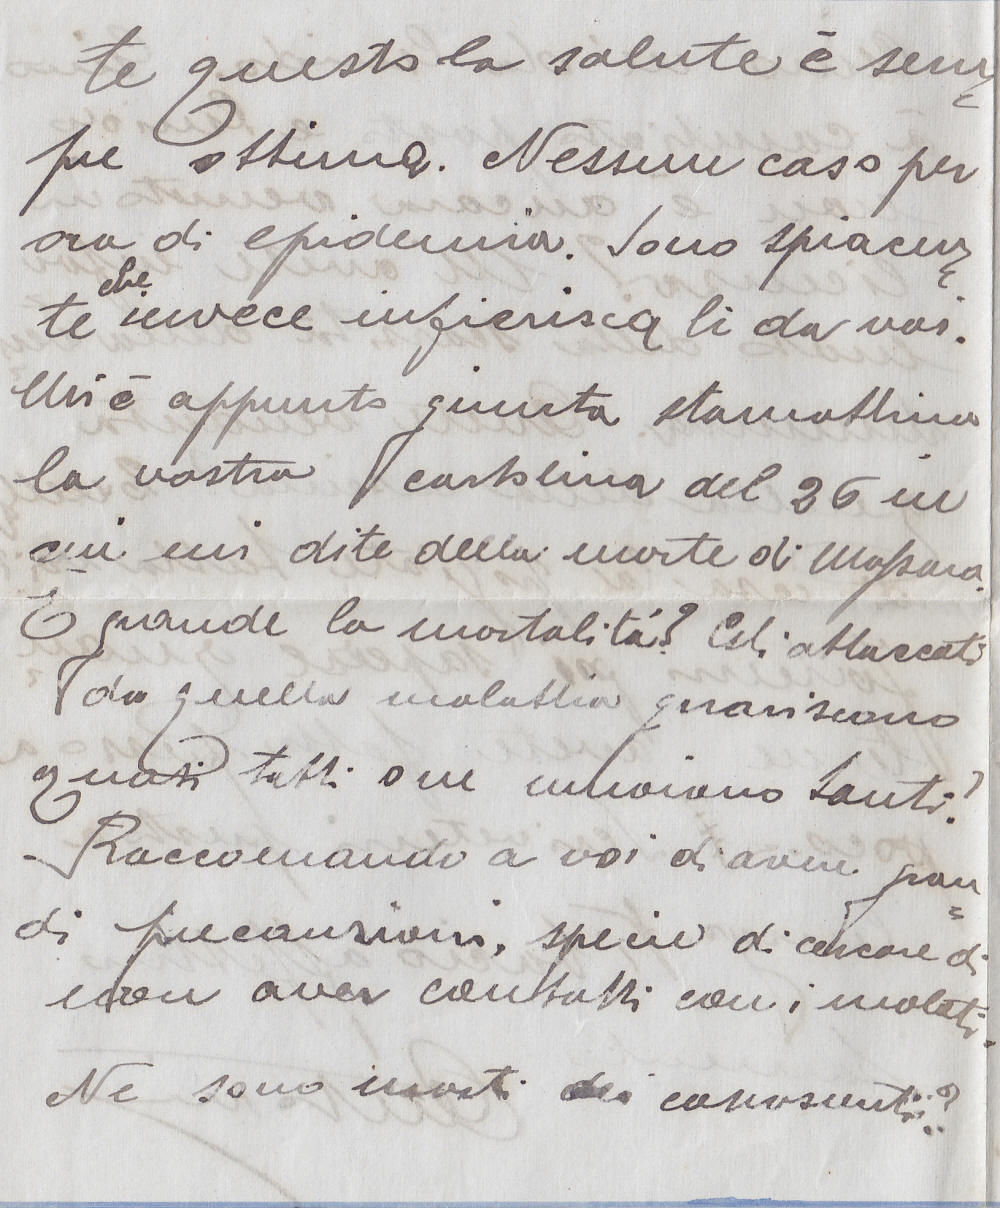 te questo la salute è sem=
pre ottima. Nessun caso per
ora di epidemia. Sono spiacen=
te che invece infierisca lì da voi.
Mi è appunto giunta stamattina
la vostra cartolina del 26 in
cui mi dite della morte di Massara.
È grande la mortalità? Gli attaccati
da quella malattia guariscono
quasi tutti o ne muoiono tanti?
- Raccomando a voi di avere gran=
di precauzioni, specie di cercare di
non aver contatti con i malati.
Ne sono morti dei conoscenti?